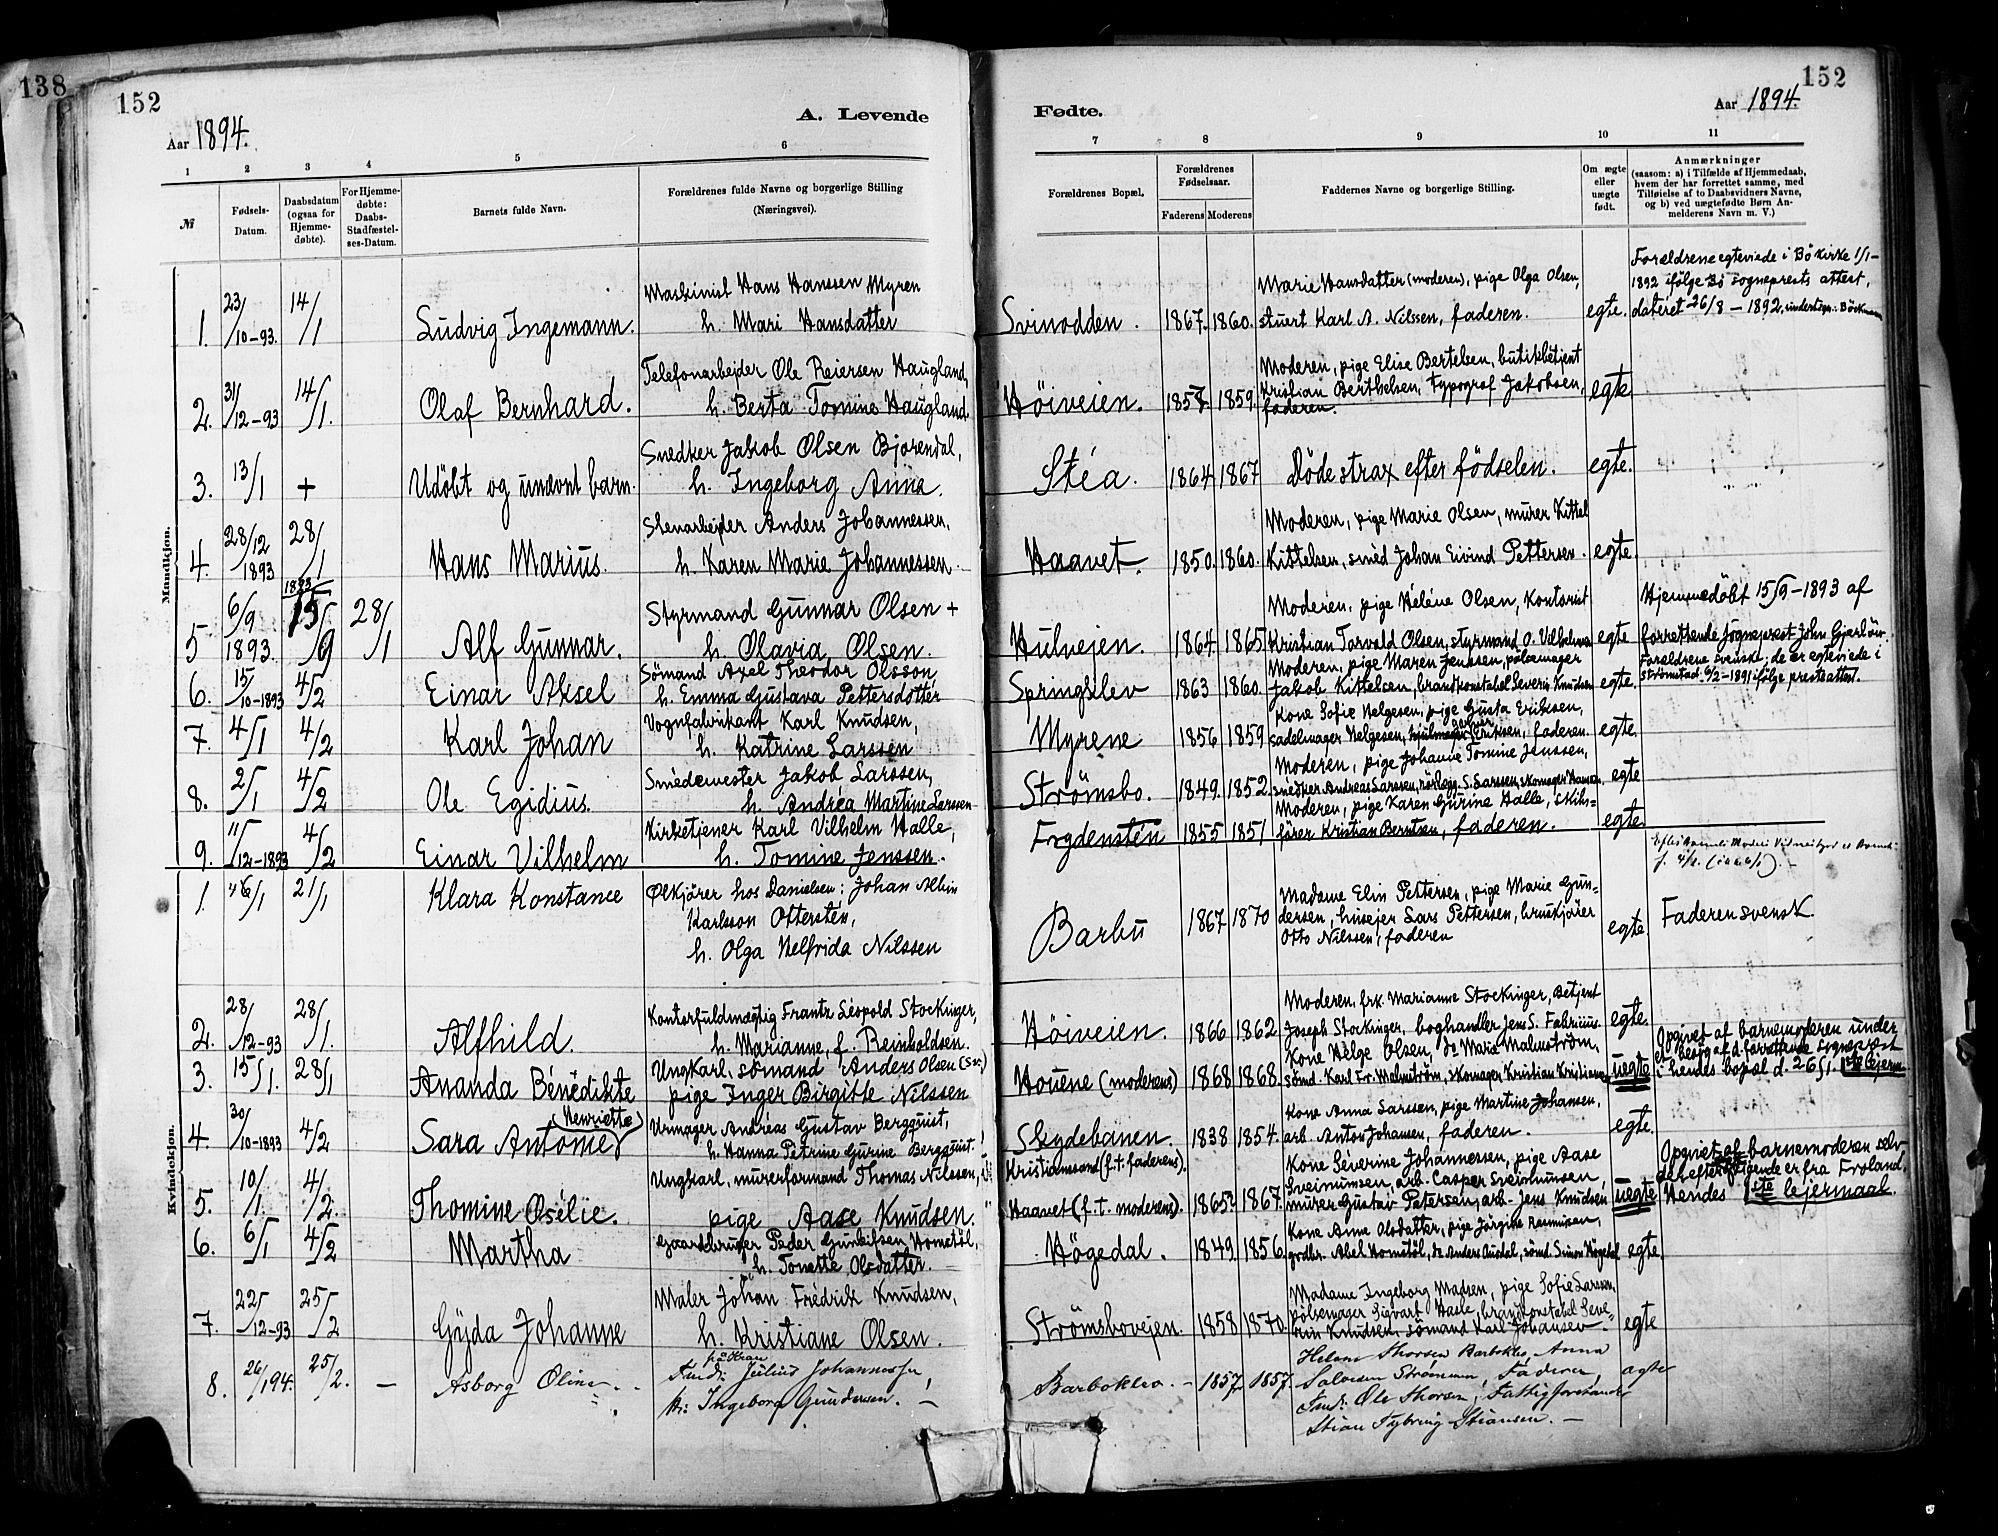 138
152
152
Aar 1894.
A. Levende
Fødte.
Aar 1894.
1 2 3 4 5 6
7 8 9 10 11
№
Fødsels-
Datum.
Daabsdatum
(ogsaa for
Hjemme-
døbte).
For Hjemme-
døbte:
Daabs-
Stadfæstel-
ses-Datum.
Barnets fulde Navn.
Forældrenes fulde Navne og borgerlige Stilling
(Næringsvei).
Forældrenes Bopæl,
Forældrenes
Fødselsaar.
Faderens Moderens
Faddernes Navne og borgerlige Stilling.
Om ægte
eller
uægte
født.
Anmærkninger
(saasom: a) i Tilfælde af Hjemmedaab,
hvem der har forrettet samme, med
Tilføielse af to Daabsvidners Navne,
og b) ved uægtefødte Børn An-
melderens Navn m. V.)
Mandkjøn.
1. 23/10-93. 14/1 Ludvig Ingemann.
Maskinist Hans Hanssen Myren
h. Mari Hansdatter
Svinodden. 1867. 1860.
Marie Hansdatter (moderen), pige Olga Olsen,
stuert Karl A. Nilssen, faderen.
egte.
Forældrene egteviede i Bö kirke 1/1-
1892 ifölge Bö sogneprests attest,
dateret 26/8 - 1892.
2. 31/12-93 14/1. Olaf Bernhard.
Telefonarbejder Ole Reiersen Haugland,
h. Berta Tomine Haugland.
Höiveien. 1857. 1859.
Moderen, pige Elise Bertelsen, butikbetjent
Kristian Berthelsen, typograf Jakobsen,
faderen.
egte
3. 13/1 + Udöbt og unævnt barn.
Snedker Jakob Olsen Bjorendal,
h. Ingeborg Anna.
Stéa. 1864 1867
Döde strax efter födselen.
egte.
4. 28/12 1893 28/1 Hans Marius.
Stenarbejder Anders Johannessen,
h. Karen Marie Johannessen.
Haavet. 1850. 1860.
Moderen, pige Marie Olsen, murer Kittel
Kittelsen, smed Johan Eivind Pettersen.
egte.
5 6/9 1893. 1893 15/9 28/1 Alf Gunnar.
Styrmand Gunnar Olsen +
h. Olavia Olsen.
Hulveien. 1864. 1865.
Moderen, pige Heléne Olsen, Kontorist
Kristian Torvald Olsen, styrmand O. Vilhelmsen
egte
Hjemmedöbt 15/9-1893 af
forrettende sogneprest John Gjerløw.
6. 15/10-1893 4/2 Einar Aksel
Sömand Axel Theodor Olsson,
h. Emma Gustava Pettersdotter
Springkilev 1863 1860.
Moderen, pige Maren Jenssen, pölsemager
Jakob Kittelsen, brandkonstabel Severin Knudsen
egte.
Forældrene svenske, de er egteviede i
Strømstad 6/2-1891 ifölge prestsattest.
7. 4/1 4/2 Karl Johan
Vognfabrikant Karl Knudsen,
h. Katrine Larssen
Myrene 1856 1859
Kone Sofie Helgesen, pige Gusta Eriksen,
sadelmager Helgesen, hjulmager Eriksen, faderen.
egte.
8. 2/1 4/2 Ole Egidius.
Smedemester Jakob Larssen,
h. Andréa Martine Larssen
Strømsbo. 1849. 1852.
Moderen, pige Johanne Tomine Jenssen,
snedker Andreas Larssen, rörlegg. S. Larssen, skomager Hansen.
egte
9. 11/12-1893 4/2 Einar Vilhelm
Kirketjener Karl Vilhelm Halle,
h. Tomine Jenssen.
Frydensten 1855 1851
Moderen, pige Karen Gurine Halle, skibs=
förer Kristian Berntsen, faderen.
egte
Kvindekjøn.
1. 21/1 Klara Konstance
Ølkjörer hos Danielsen: Johan Albin
Karlsson Ottersten,
h. Olga Helfrida Nilssen
Barbu 1867 1870
Madame Elin Pettersen, pige Marie Gun=
dersen, husejer Lars Pettersen, bruskjörer
Otto Nilssen, faderen
egte.
Faderen svensk.
2. 28/12-93 28/1. Alfhild.
Kontorfuldmægtig Frantz Leopold Stockinger,
h. Marianne, f. Reinholdsen.
Höiveien. 1866 1862
Moderen, frk. Marianne Stockinger, Betjent
Joseph Stockinger, boghandler Jens S. Fabricius.
egte.
3. 15/1. 28/1 Ananda Bénédikte
Ungkarl, sömand Anders Olsen (Sv.)
pige Inger Birgitte Nilssen
Houene (moderens) 1868. 1868.
Kone Helge Olsen, do Marie Malmström,
sömd. Karl Fr. Malmström, skomager Kristian Kristiansen
uegte
Opgivet af barnemoderen under
et besøg af d. forrettende sogneprest
i hendes bopæl d. 26/1. 1ste lejerm.
4. 30/10-1893 4/2 Sara Antonie (Henriette)
Urmager Andreas Gustav Bergquist,
h. Hanna Petrine Gurine Bergquist.
Skydebanen. 1838 1854.
Kone Anna Larssen, pige Martine Johansen,
arb. Anton Johansen, faderen.
egte.
5. 10/1. 4/2. Thomine Osélie.
Ungkarl, murerformand Thomas Nilssen,
pige Aase Knudsen.
Kristianssand (f.t. faderens).
Haavet (f.t. moderens). 1865? 1867.
Kone Séverine Johannessen, pige Aase
Sveinunsen, arb. Casper Sveinunsen,
murer Gustav Petersen, arb. Jens Knudsen
uegte
Opgivet af barnemoderen selv
er fra Froland.
Hendes 1ste lejermaal.
6. 6/1 4/2 Martha
Gaardbruger Peder Gunleifsen Homstöl,
h. Tonette Olsdatter.
Högedal. 1849. 1856.
Kone Anne Olsdatter, pige Jörgine Rasmusen,
grdbr. Abel Homstöl, do Anders Ausdal, sömd. Simon Högedal
egte.
7. 22/12-93 25/2 Gyda Johanne
Maler Johan Fredrik Knudsen,
h. Kristiane Olsen.
Strömsboveien. 1858 1870.
Madame Ingeborg Madsen, pige Sofie Larssen,
pölsemager Sigvart Hasle, brandkonstabel Seve-
rin Knudsen, sömand Karl Johansen.
egte
8. 26/1 94. 25/2. — Asborg Oline
Julius Johannessen,
H: Ingeborg Gundersen. —
Barbokleo. - 1857 1857.
Helene Thorsen Barbokleo, Anna
Salvesen Strømmen, Faderen,
Ole Thorsen, Fattigforstander
Stian Tybring Stiansen. —
egte